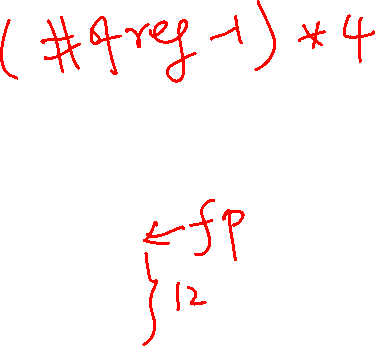 (#4reg-1)*4
←fp
}12